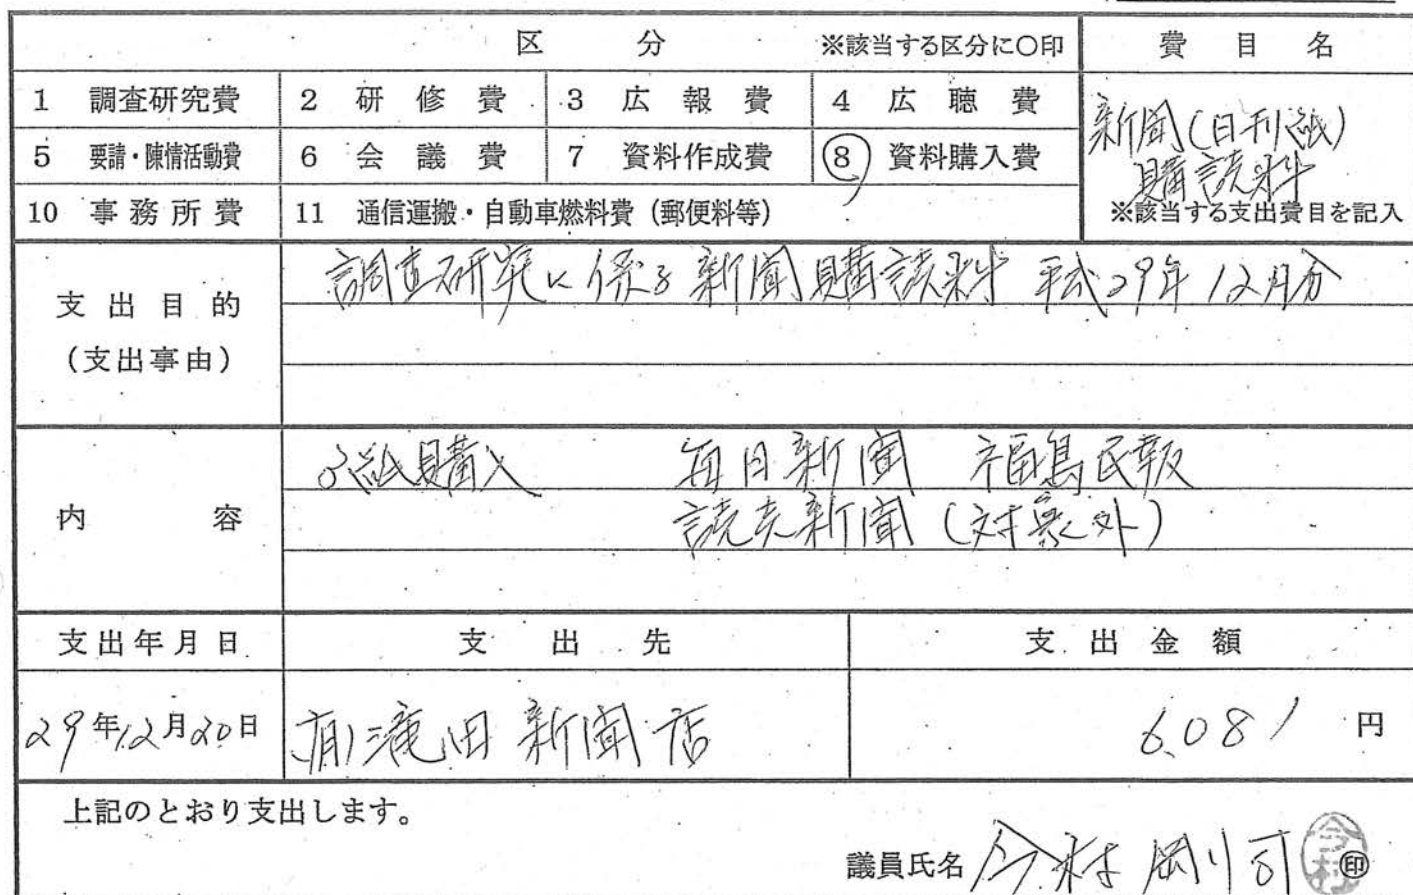 区 分 ※該当する区分に〇印 費 目 名
1 調査研究費 2 研修費 3 広報費 4 広聴費
新聞(日刊紙)
5 要請・陳情活動費 6 会議費 7 資料作成費 8 資料購入費
購読料
10 事務所費 11 通信運搬・自動車燃料費(郵便料等) ※該当する支出費目を記入
支出目的
(支出事由)
調査研究に係る新聞購読料 平成29年12月分
内 容
紙購入 毎日新聞 福島民報
読売新聞(対象外)
支出年月日 支 出 先 支 出 金 額
29年12月20日 (有)滝田新聞店 6,081 円
上記のとおり支出します。
議員氏名 今村剛司 印
今村